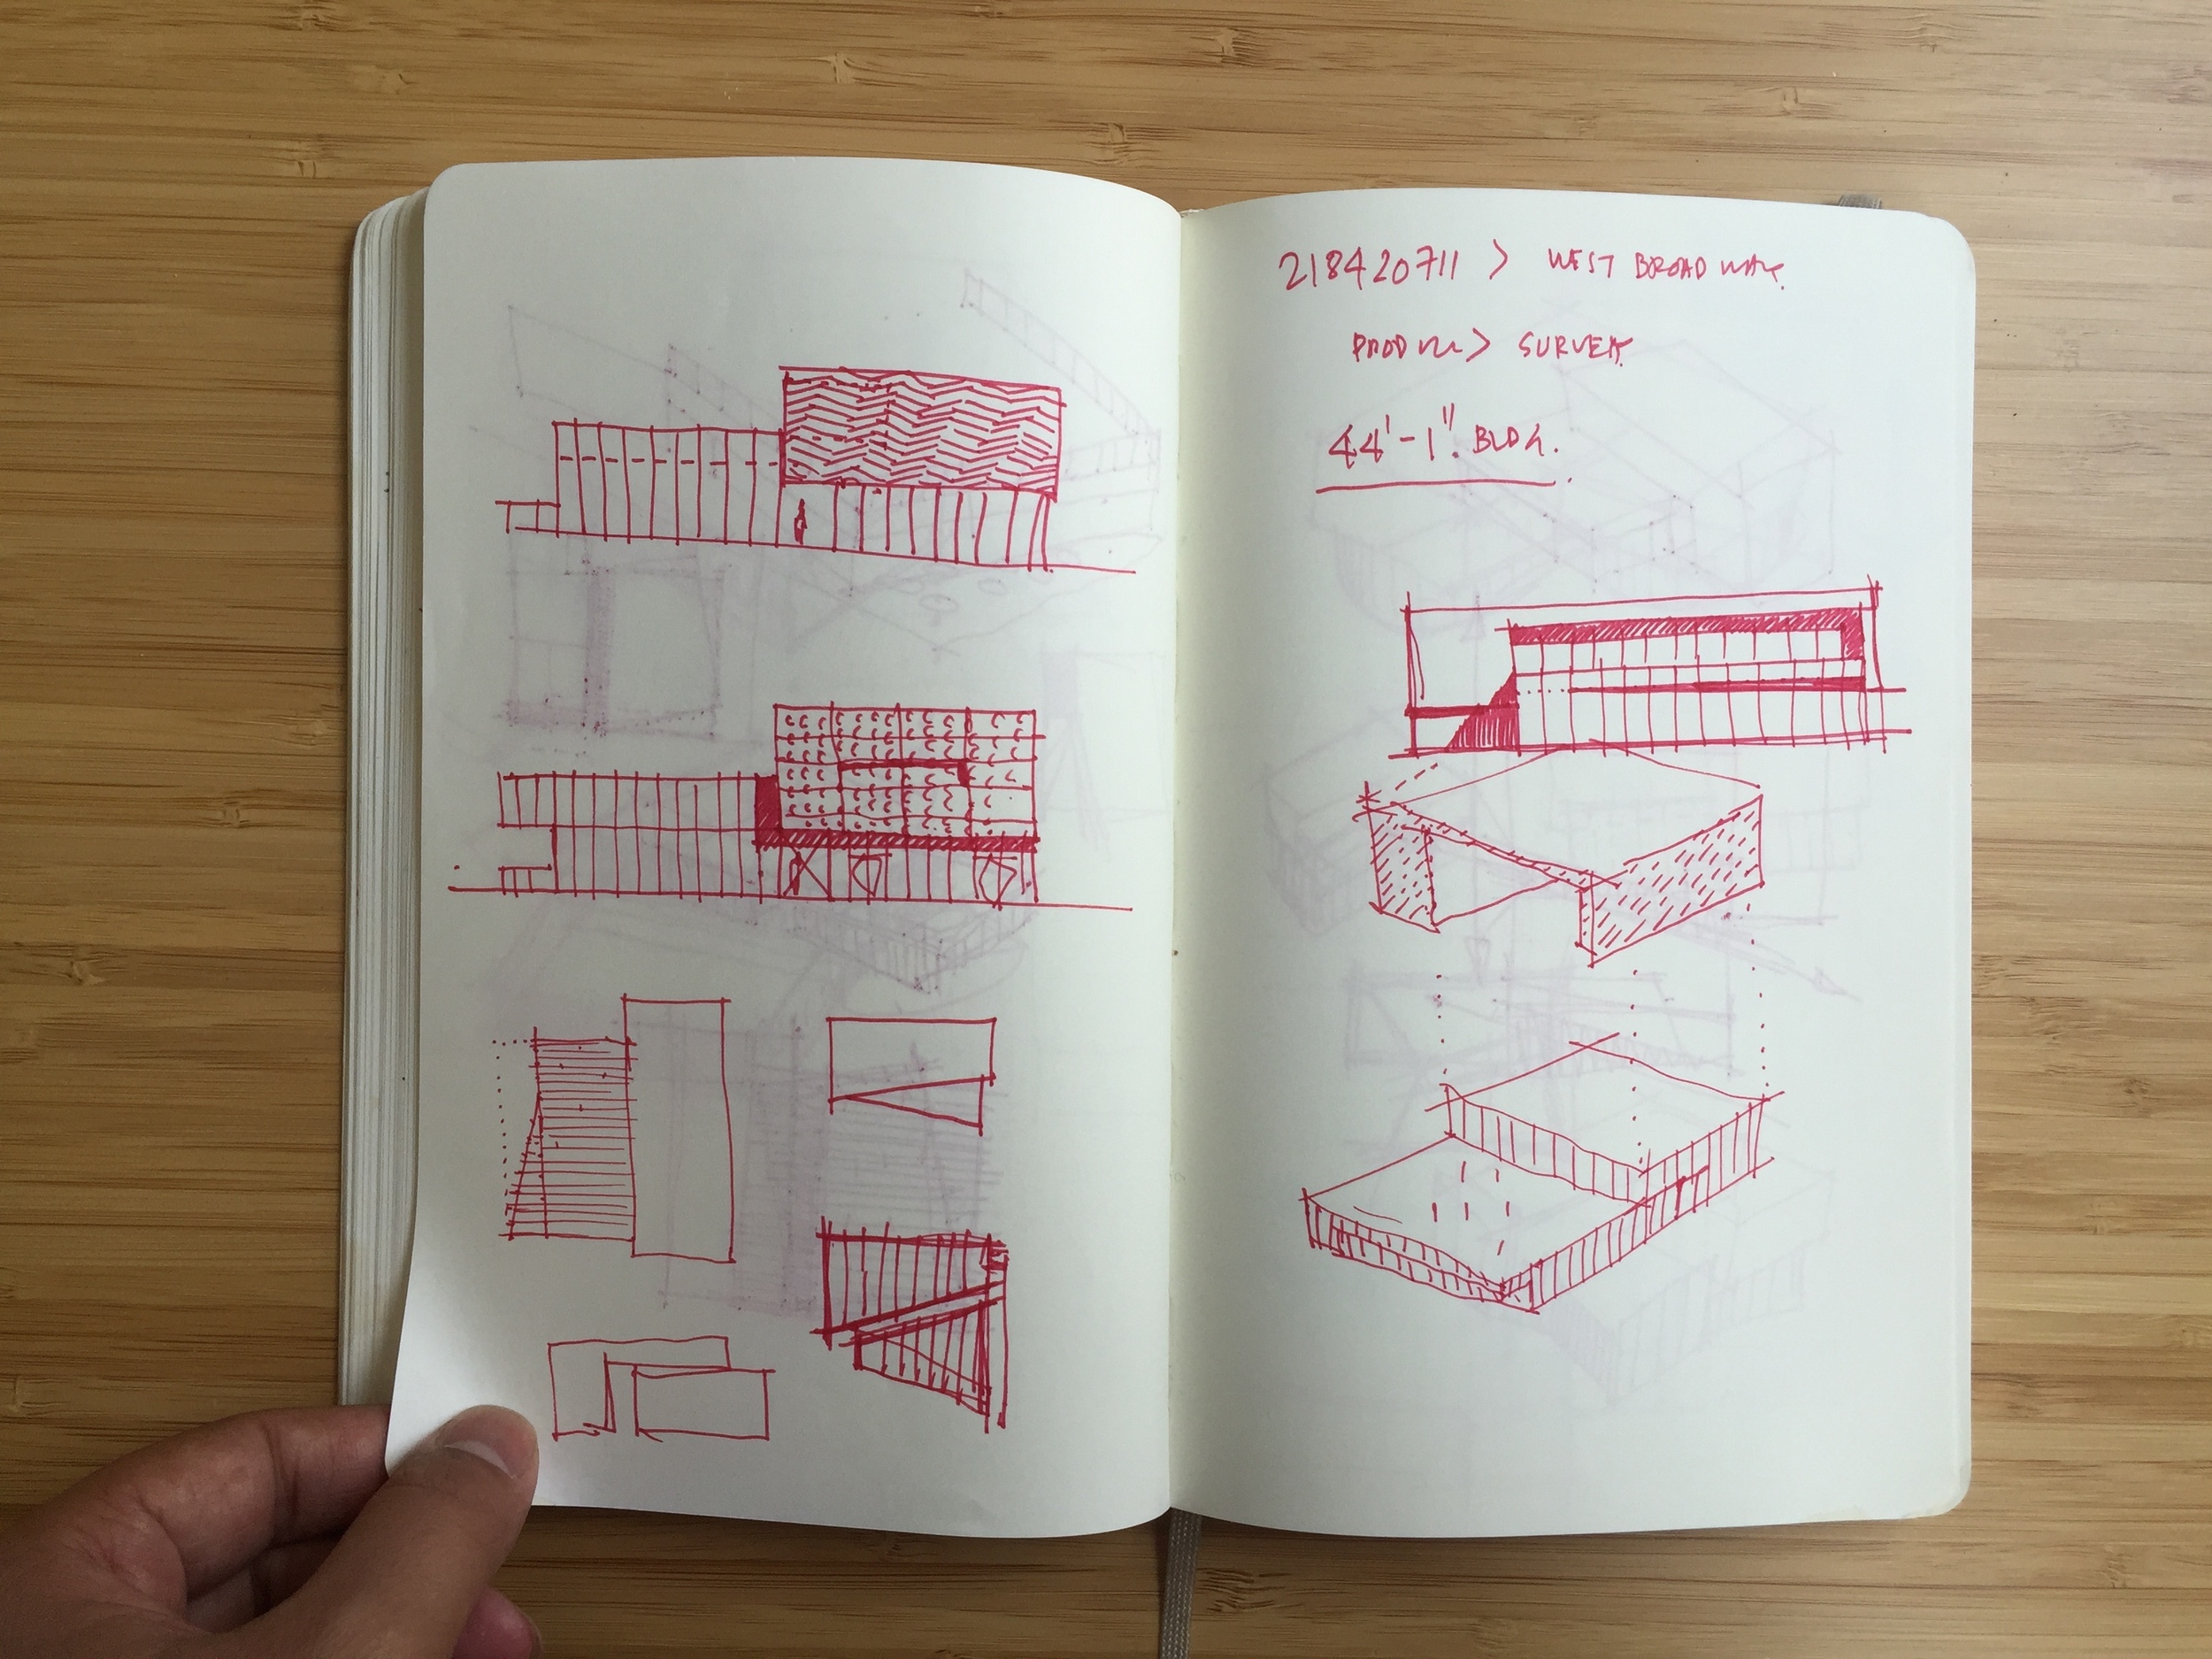 218420711 > WEST BROADWAY.
> SURVEY
44'-1" BLDG.